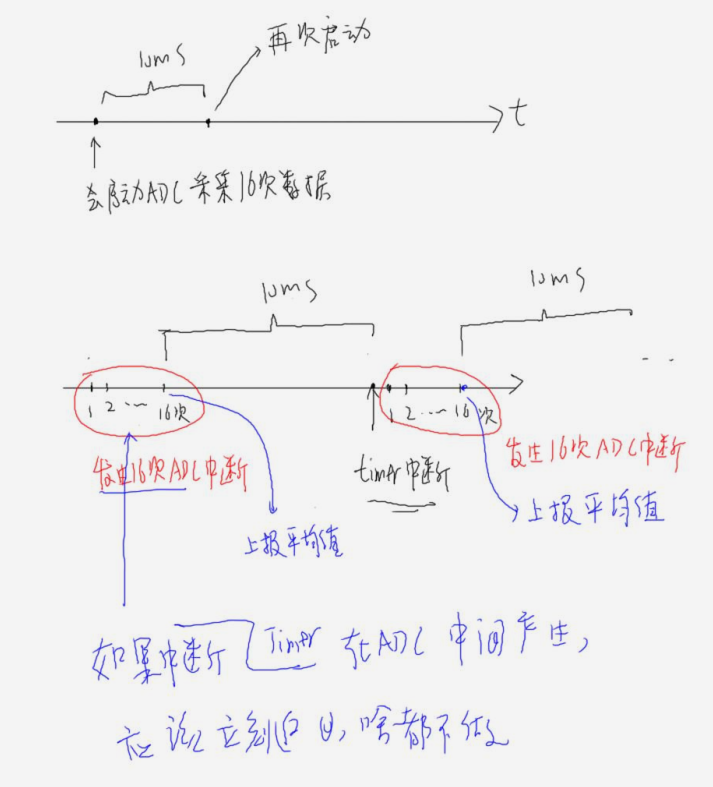 10ms
再次启动
t
会启动ADC采集16次数据
10ms
10ms
1 2 … 16次
1 2 … 16次
发生16次ADC中断
timer中断
发生16次ADC中断
上报平均值
上报平均值
如果中断 Timer 在ADC中间产生,
应该立刻返回,啥都不做